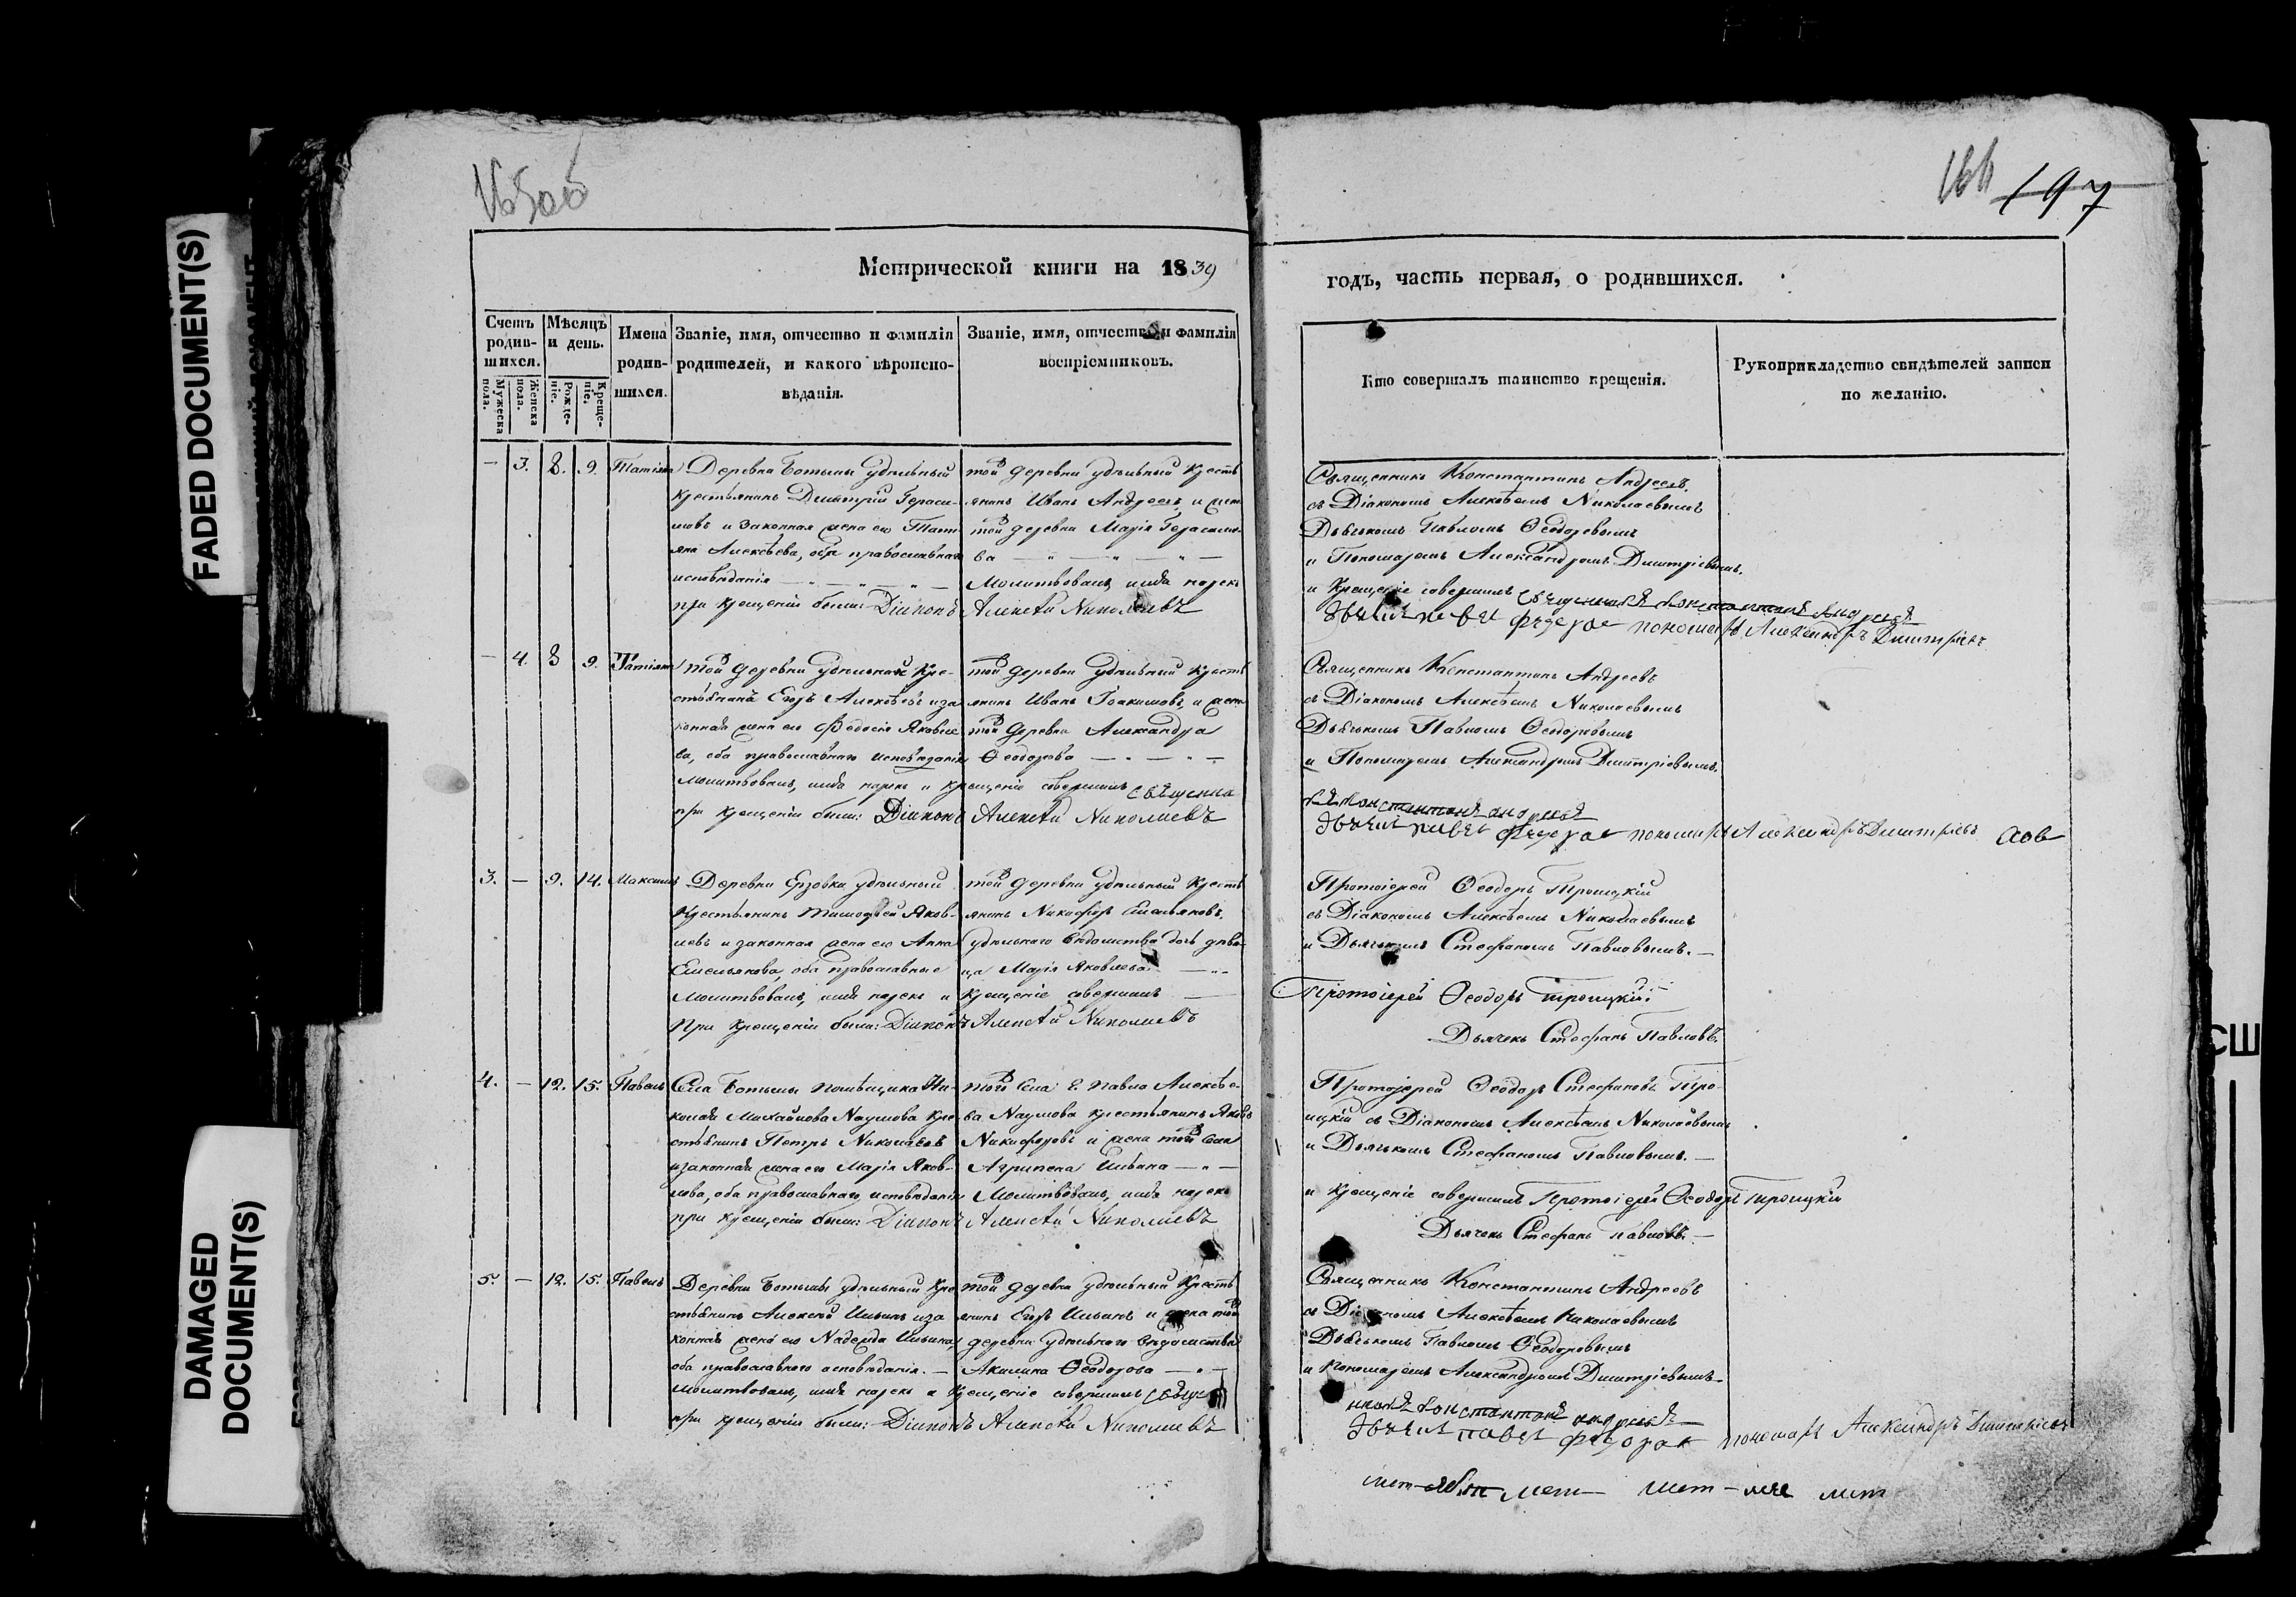 FADED DOCUMENT(S)
DAMAGED
DOCUMENT(S)
165об
166 197
Метрической книги на 1839
годъ, часть первая, о родившихся.
Счетъ родившихся.
Мужеска пола.
Женска пола.
Мѣсяцъ и день.
Рожденіе.
Крещеніе.
Имена родившихся.
Званіе, имя, отчество и фамилія
родителей, и какого вѣроиспо-
вѣданія.
Званіе, имя, отчество и фамилія
воспріемниковъ.
Кто совершалъ таинство крещенія.
Рукоприкладство свидѣтелей записи
по желанію.
— 3. 8. 9. Татіяна
Деревни Ботьмы удѣльный
крестьянинъ Димитрій Гераси-
мовъ и законная жена его Тать-
яна Алексѣева, оба православнаго
исповѣданія
при крещеніи были: Діаконъ Алексѣй Николаевъ
той деревни удѣльный кресть
янинъ Иванъ Андреевъ, и жена
той деревни Марія Герасимо-
ва
Молитвовалъ, имя нарекъ
Священникъ Константинъ Андреевъ
съ Діакономъ Алексѣемъ Николаевымъ
Дьячькомъ Павломъ Ѳеодоровымъ
и Пономаремъ Александромъ Димитріевымъ.
и Крещеніе совершилъ священникъ Константинъ Андреевъ
пономарь Александръ Димитріевъ
— 4. 8 9. Татіяна
той деревни удѣльный кре-
стьянинъ Егоръ Алексѣевъ и за
конная жена его Ѳедосія Яковле
ва, оба православнаго исповѣданія
Молитвовалъ, имя нарекъ и крещеніе совершилъ священни
при крещеніи были: Діаконъ Алексѣй Николаевъ
той деревни удѣльный кресть
янинъ Иванъ Іоакимовъ, и жена
той деревни Александра
Ѳеодорова
Священникъ Константинъ Андреевъ
съ Діакономъ Алексѣемъ Николаевымъ
Дьячькомъ Павломъ Ѳеодоровымъ
и Пономаремъ Александромъ Димитріевымъ.
къ Константинъ Андреевъ
пономарь Александръ Димитріевъ
3. — 9. 14. Максимъ
Деревни Ерзовки удѣльный
крестьянинъ Тимоѳей Яков-
левъ и законная жена его Анна
Емельянова, оба православные
Молитвовалъ, имя нарекъ и крещеніе совершилъ
При крещеніи были: Діаконъ Алексѣй Николаевъ
той деревни удѣльный кресть
янинъ Никифоръ Емельяновъ,
удѣльного вѣдомства дочь дѣви-
ца Марія Яковлева
Протоіерей Ѳеодоръ Троицкій
съ Діакономъ Алексѣемъ Николаевымъ
и Дьячькомъ Стефаномъ Павловымъ.
Протоіерей Ѳеодоръ Троицкій.
Дьячекъ Стефанъ Павловъ.
4. — 12. 15. Павелъ
Села Ботьмы помѣщика Ни-
колая Михайлова Наумова кре
стьянинъ Петръ Николаевъ
и законная жена его Марія Яков-
лова, оба православнаго исповѣданія
при крещеніи были: Діаконъ Алексѣй Николаевъ
той села Г. Павла Алексѣе-
ва Наумова крестьянинъ Яковъ
Никифоровъ и жена той села
Агрипена Ивана
Молитвовалъ, имя нарекъ
Протоіерей Ѳеодоръ Стефановъ Тро-
ицкій съ Діакономъ Алексѣемъ Николаевымъ
и Дьячькомъ Стефаномъ Павловымъ.
и крещеніе совершилъ Протоіерей Ѳеодоръ Троицкій
Дьячекъ Стефанъ Павловъ.
5. — 12. 15. Павелъ
Деревни Ботьмы удѣльный кре
стьянинъ Алексѣй Ивановъ и за
конная жена его Надежда Иванова,
оба православнаго исповѣданія.
Молитвовалъ, имя нарекъ и крещеніе совершилъ свяще
при крещеніи были: Діаконъ Алексѣй Николаевъ
той деревни удѣльный кресть
янинъ Егоръ Ивановъ и жена той
деревни удѣльного вѣдомства
Акилина Ѳеодорова
Священникъ Константинъ Андреевъ
съ Діакономъ Алексѣемъ Николаевымъ
Дьячькомъ Павломъ Ѳеодоровымъ
и Пономаремъ Александромъ Димитріевымъ
никъ Константинъ Андреевъ
пономарь Александръ Димитріевъ